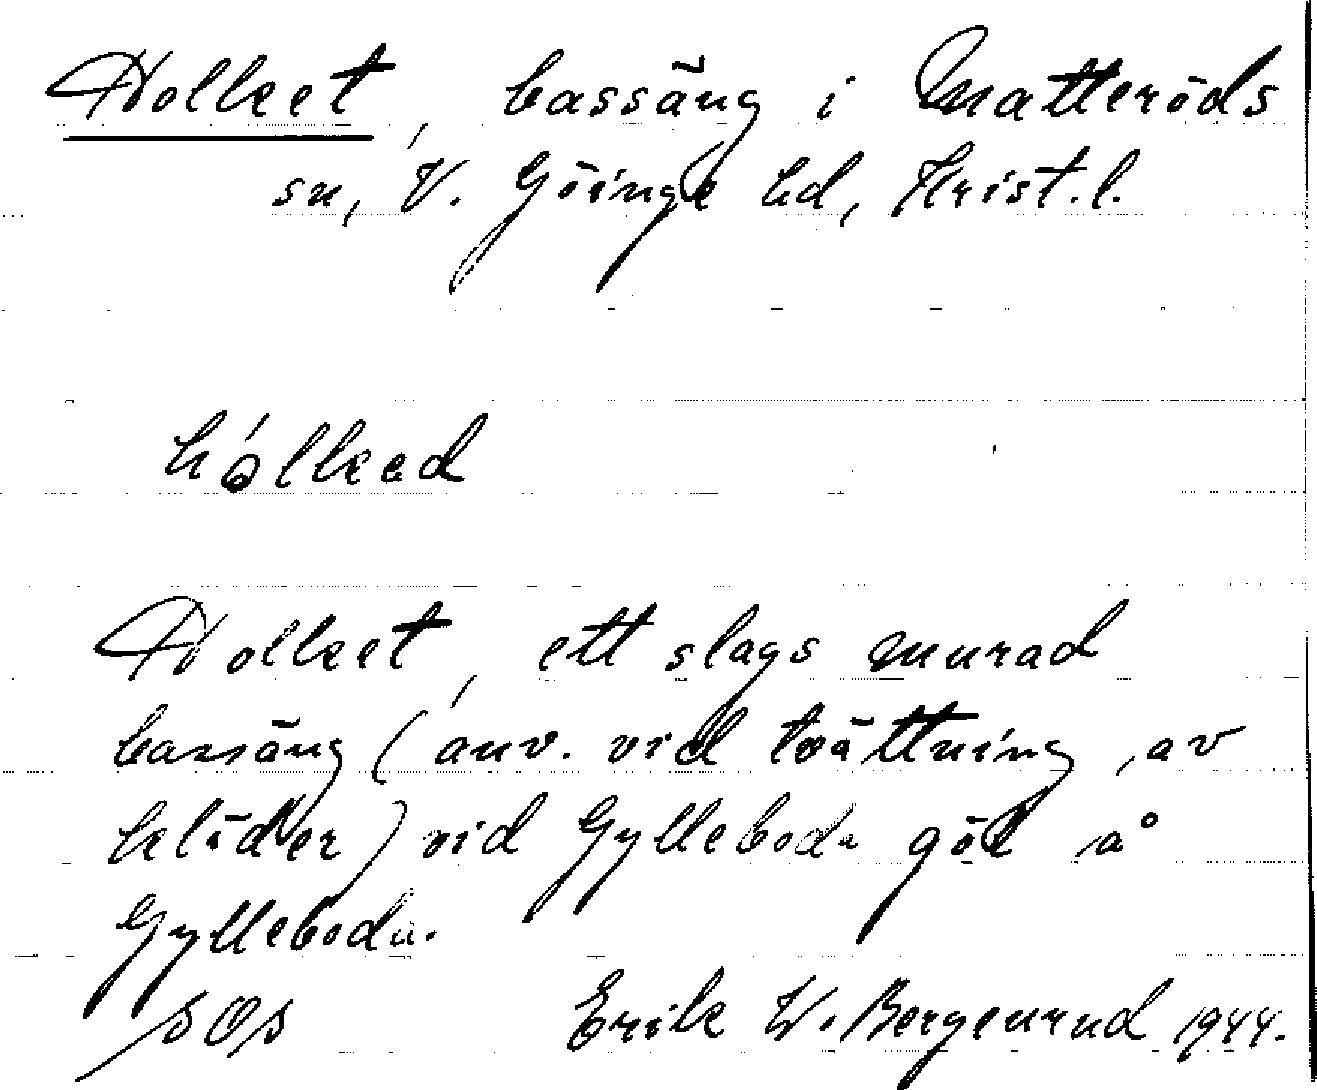 Holket, bassäng i Matteröds
sn, V. Göinge hd, Krist.l.
hólkəd
Holket, ett slags murad
bassäng (anv. vid tvättning av
kläder) vid Gylleboda göl å
Gylleboda.
SOS Erik W. Bergenrud 1944.